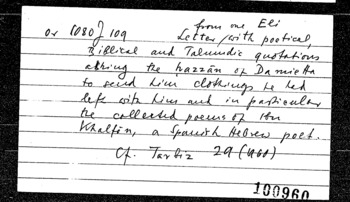 from one Eli
Or 1080 J 109 Letter, with poetical,
Biblical and Talmudic quotations
asking the hazzān of Damietta
to send him clothings he had
left with him and in particular
the collected poems of Ibn
Khalfōn, a Spanish Hebrew poet.
Cf. Tarbiz 29 (1960)
100960